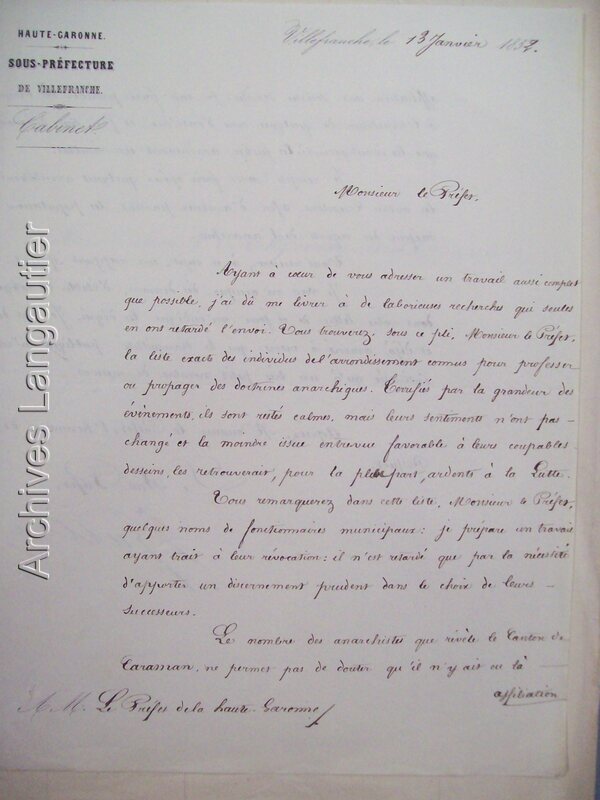 HAUTE-GARONNE.
SOUS-PRÉFECTURE
DE VILLEFRANCHE.
Cabinet
Villefranche, le 13 Janvier 1852.
Monsieur le Préfet,
Ayant à cœur de vous adresser un travail aussi complet
que possible, j'ai dû me livrer à de laborieuses recherches qui seules
en ont retardé l'envoi. Vous trouverez, sous ce pli, Monsieur le Préfet,
la liste exacte des individus de l'arrondissement connus pour professer
ou propager des doctrines anarchiques. Terrifiés par la grandeur des
évènements, ils sont restés calmes, mais leurs sentiments n'ont pas
changé et la moindre issue entrevue favorable à leurs coupables
desseins, les retrouverait, pour la plupart, ardents à la Lutte.
Vous remarquerez dans cette liste, Monsieur le Préfet,
quelques noms de fonctionnaires municipaux: je prépare un travail
ayant trait à leur révocation: il n'est retardé que par la nécessité
d'apporter un discernement prudent dans le choix de leurs
successeurs.
Le nombre des anarchistes que révèle le Canton de
Caraman, ne permet pas de douter qu'il n'y ait eu là
affiliation
A M. Le Préfet de la haute-Garonne
Archives Langautier